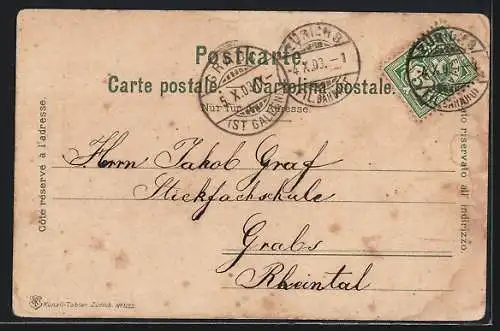 Postkarte.
Carte postale. Cartolina postale.
Nur für die Adresse.
ZÜRICH 8
4. X. 03. - 1
5. X. 03.
(ST GALLEN)
Côté réservé à l'adresse.
Lato riservato all' indirizzo.
Herrn Jakob Graf
Stickfachschule
Grabs
Rheintal
Künzli-Tobler, Zürich.